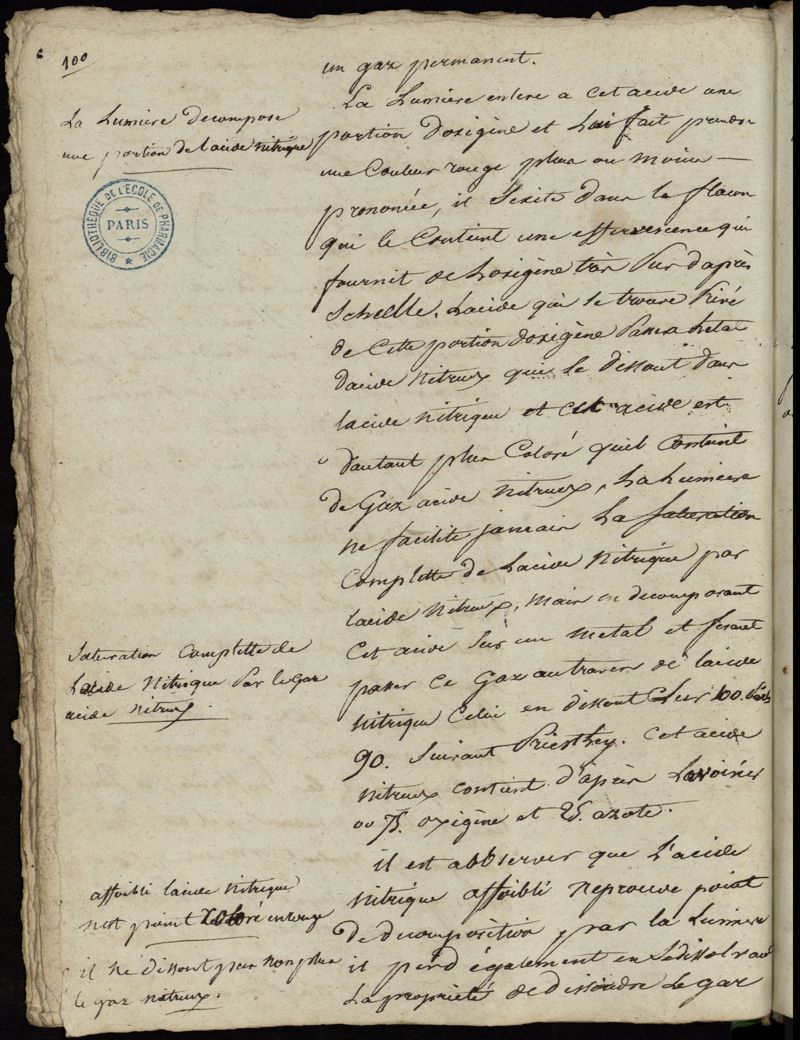 100
un gaz permanent.
La Lumière decompose
une portion de lacide nitrique
BIBLIOTHÈQUE DE L'ÉCOLE DE PHARMACIE
PARIS
La Lumiere enleve a cet acide une
portion doxigène et Lui fait prendre
une Couleur rouge plus ou moins —
prononcée, il Sexite dans le flacon
qui le Contient une effervescence qui
fournit de Loxigène très Pur d'après
Schelle. Lacide qui se trouve Privé
de Cette portion doxigène Passe a letat
dacide Nitreux que se dissout dans
lacide nitrique et cet acide est
d'autant plus Coloré quil Contient
de Gaz acide nitreux, La Lumiere
ne facilite jamais La saturation
Complette de Lacide Nitrique par
lacide Nitreux, mais en decomposant
Saturation Complette de
Lacide Nitrique Par le Gaz
acide nitreux.
Cet acide Sur un metal et fesant
passer ce Gaz autravers de lacide
nitrique Celui en dissout Sur 100
90. Suivant Priesthey. Cet acide
nitreux contient d'après Lavoisier
75. oxigène et 25. azote.
il est abbserver que L'acide
nitrique affoibli neprouve point
de decomposition par la Lumiere
il perd également en Sedissolvant
La propriété de dissoudre Le gaz
affoibli lacide nitrique
nest point Coloré en rouge
il ne dissout pas non plus
le gaz nitreux.